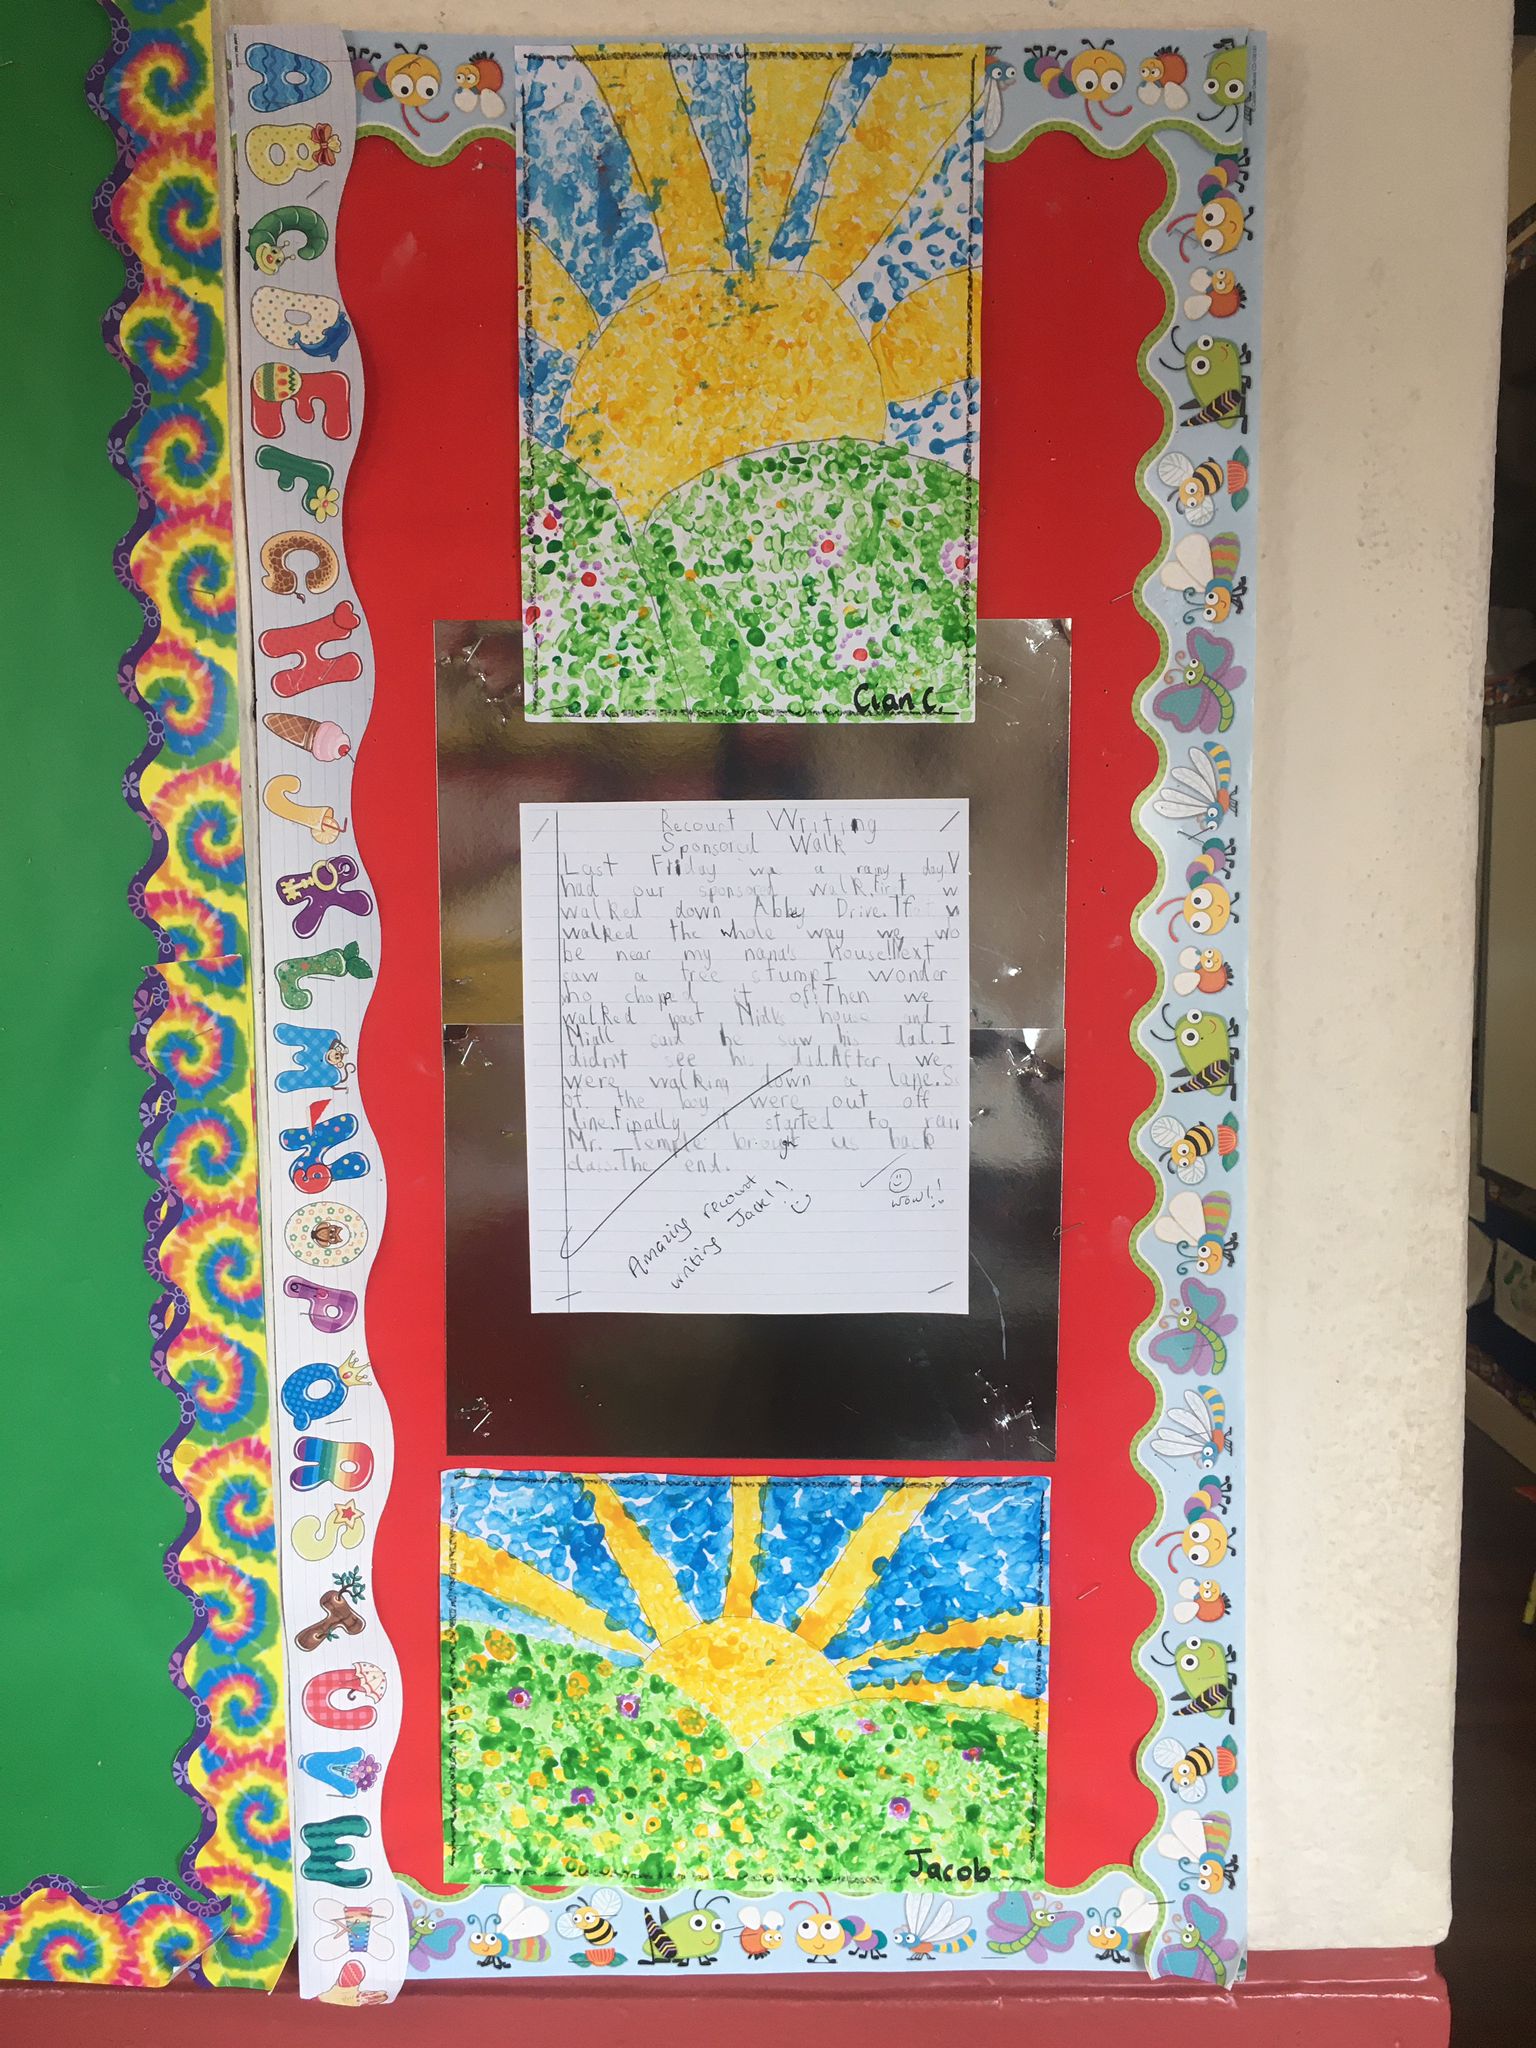 A
B
C
D
E
F
G
H
I
J
K
L
M
N
O
P
Q
R
S
T
U
V
W
X
Cian C.
Recount Writing
Sponsored Walk
Last Friday was a rainy day. W
had our sponsored walk. First w
walked down Abbey Drive. If w
walked the whole way we wo
be near my nana's house. Next
saw a tree stump I wonder
who chopped it of. Then we
walked past Nialls house and
Niall said he saw his dad. I
didn't see his dad. After we
were walking down a lane. So
of the boy were out off
line. Finally it started to rain
Mr. Temple brought us back
class. The end.
Amazing recount
writing Jack!!
wow!!
Jacob